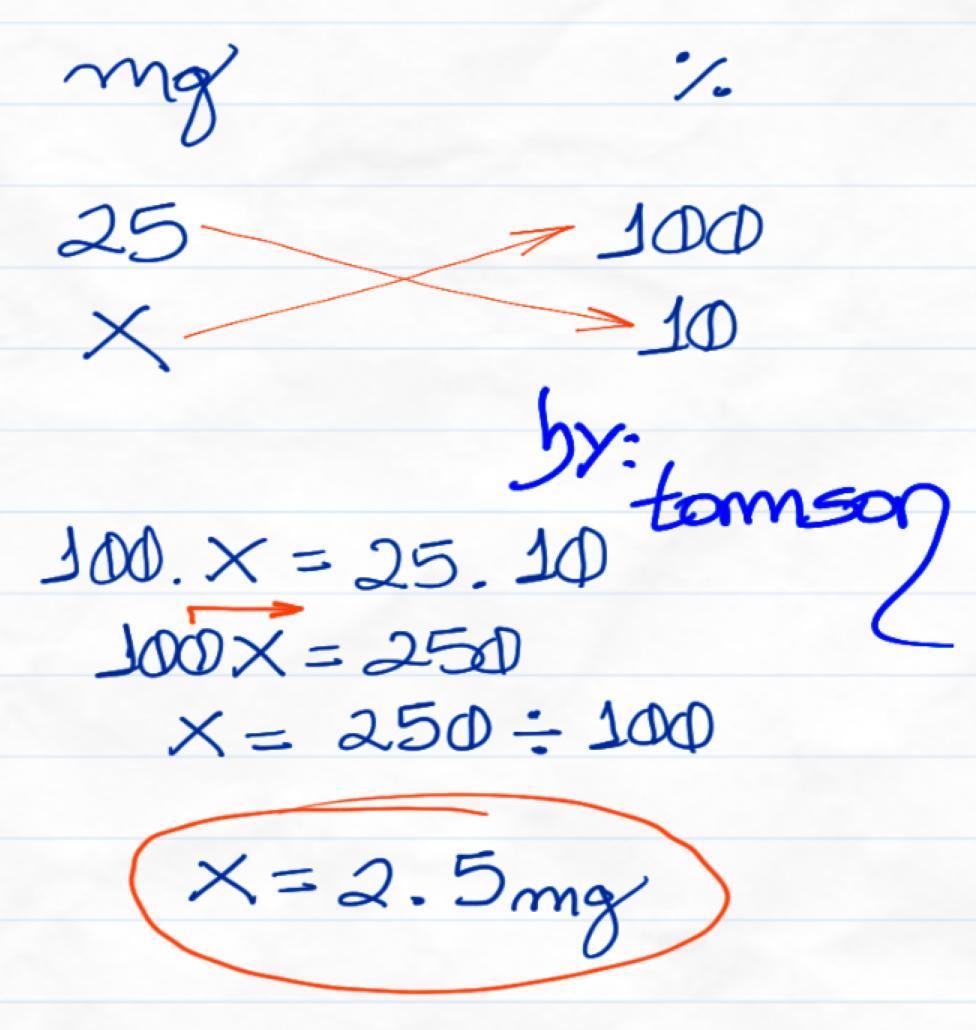 mg %
25 100
x 10
by:
tomson
100. x = 25. 10
100x = 250
x = 250 ÷ 100
x = 2.5mg